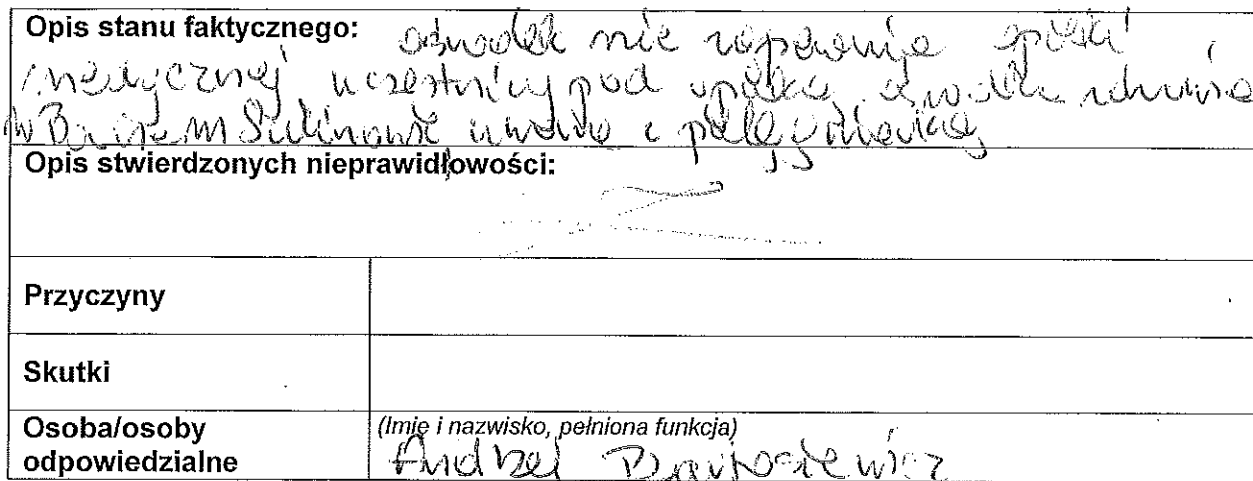 Opis stanu faktycznego: ośrodek nie zapewnia opieki
medycznej uczestnicy pod opieką ośrodka zdrowia
w Bornem Sulinowie umowa z pielęgniarką
Opis stwierdzonych nieprawidłowości:
Przyczyny
Skutki
Osoba/osoby odpowiedzialne
(Imię i nazwisko, pełniona funkcja)
Andrzej